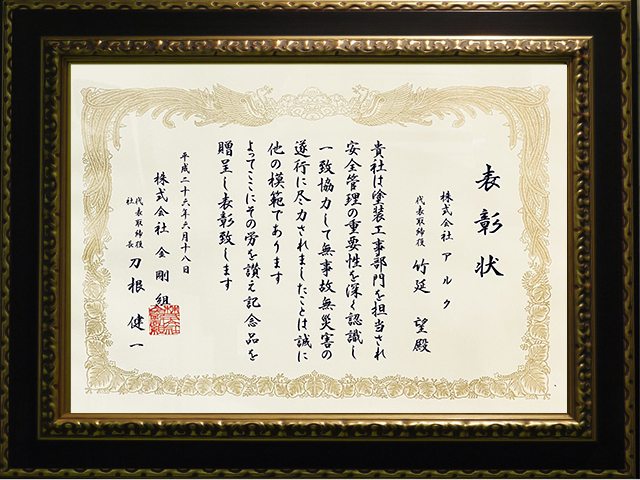 表彰状
株式会社 アルク
代表取締役 竹延 望殿
貴社は塗装工事部門を担当され
安全管理の重要性を深く認識し
一致協力して無事故無災害の
遂行に尽力されましたことは誠に
他の模範であります
よってここにその労を讃え記念品を
贈呈し表彰致します
平成二十六年六月十八日
株式会社 金剛組
代表取締役
社長 刀根 健一